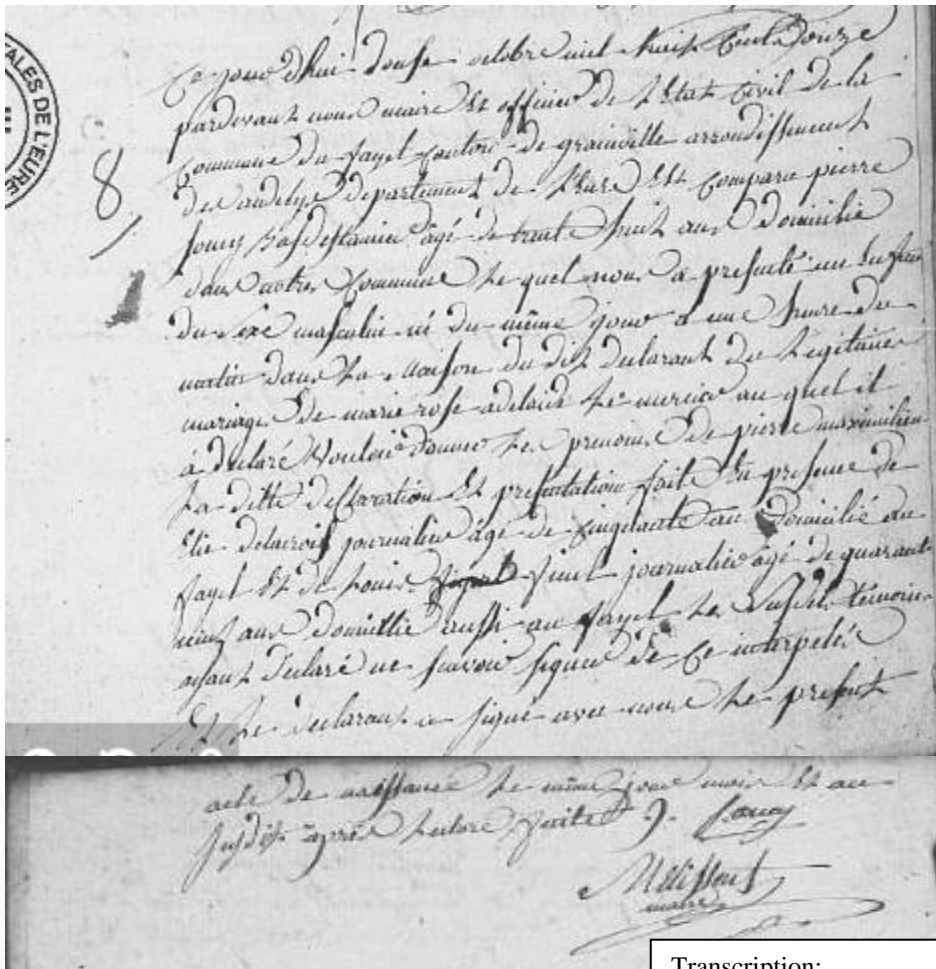 ALES DE L'EURE
8
Ce jour dhui douse octobre mil huit Cent Donze
pardevant nous maire Et officier de L'Etat Civil de la
Commune du fayel Contont de grainville arrondissement
des andelys departement de L'Eure Est Comparu pierre
agé de trente huit ans Domicilié
dans notre Commune Le quel nous a presenté un Enfant
du Sexe masculin né du même jour a une heure du
matin dans La Maison du dit declarant du Legitime
mariage De marie rose adelaide Le au quel il
à declaré Vouloir Donner Les prenoms De pierre maximilien
La ditte desclaration Et presentation faite En presence de
Elie delacroix journalier âgé de Cinquante ans Domicilié au
fayel Et de Louis journalier âgé de quarante
ans Domicillié aussi au fayel Les Susdits témoins
ayant Declaré ne scavoir signer De Ce interpelés
Et Le declarant a signé avec nous Le present
acte De naissance Le même jour mois Et an
susdit après Lecture faitte
maire
Transcription: